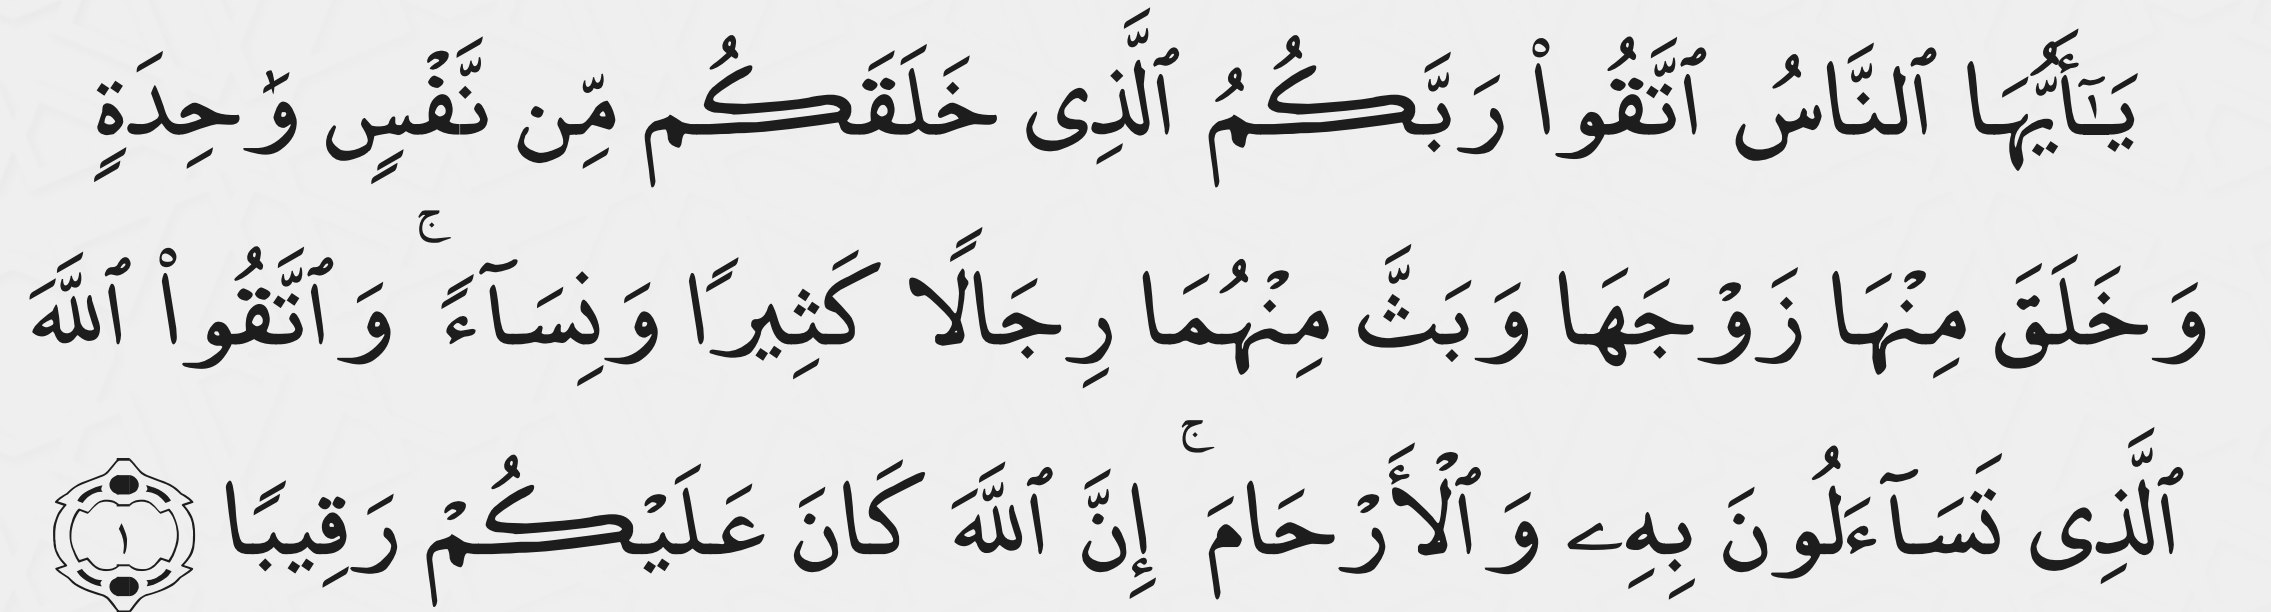 يَـٰٓأَيُّهَا ٱلنَّاسُ ٱتَّقُوا۟ رَبَّكُمُ ٱلَّذِى خَلَقَكُم مِّن نَّفْسٍ وَٰحِدَةٍ
وَخَلَقَ مِنْهَا زَوْجَهَا وَبَثَّ مِنْهُمَا رِجَالًا كَثِيرًا وَنِسَآءً ۚ وَٱتَّقُوا۟ ٱللَّهَ
ٱلَّذِى تَسَآءَلُونَ بِهِۦ وَٱلْأَرْحَامَ ۚ إِنَّ ٱللَّهَ كَانَ عَلَيْكُمْ رَقِيبًا ١